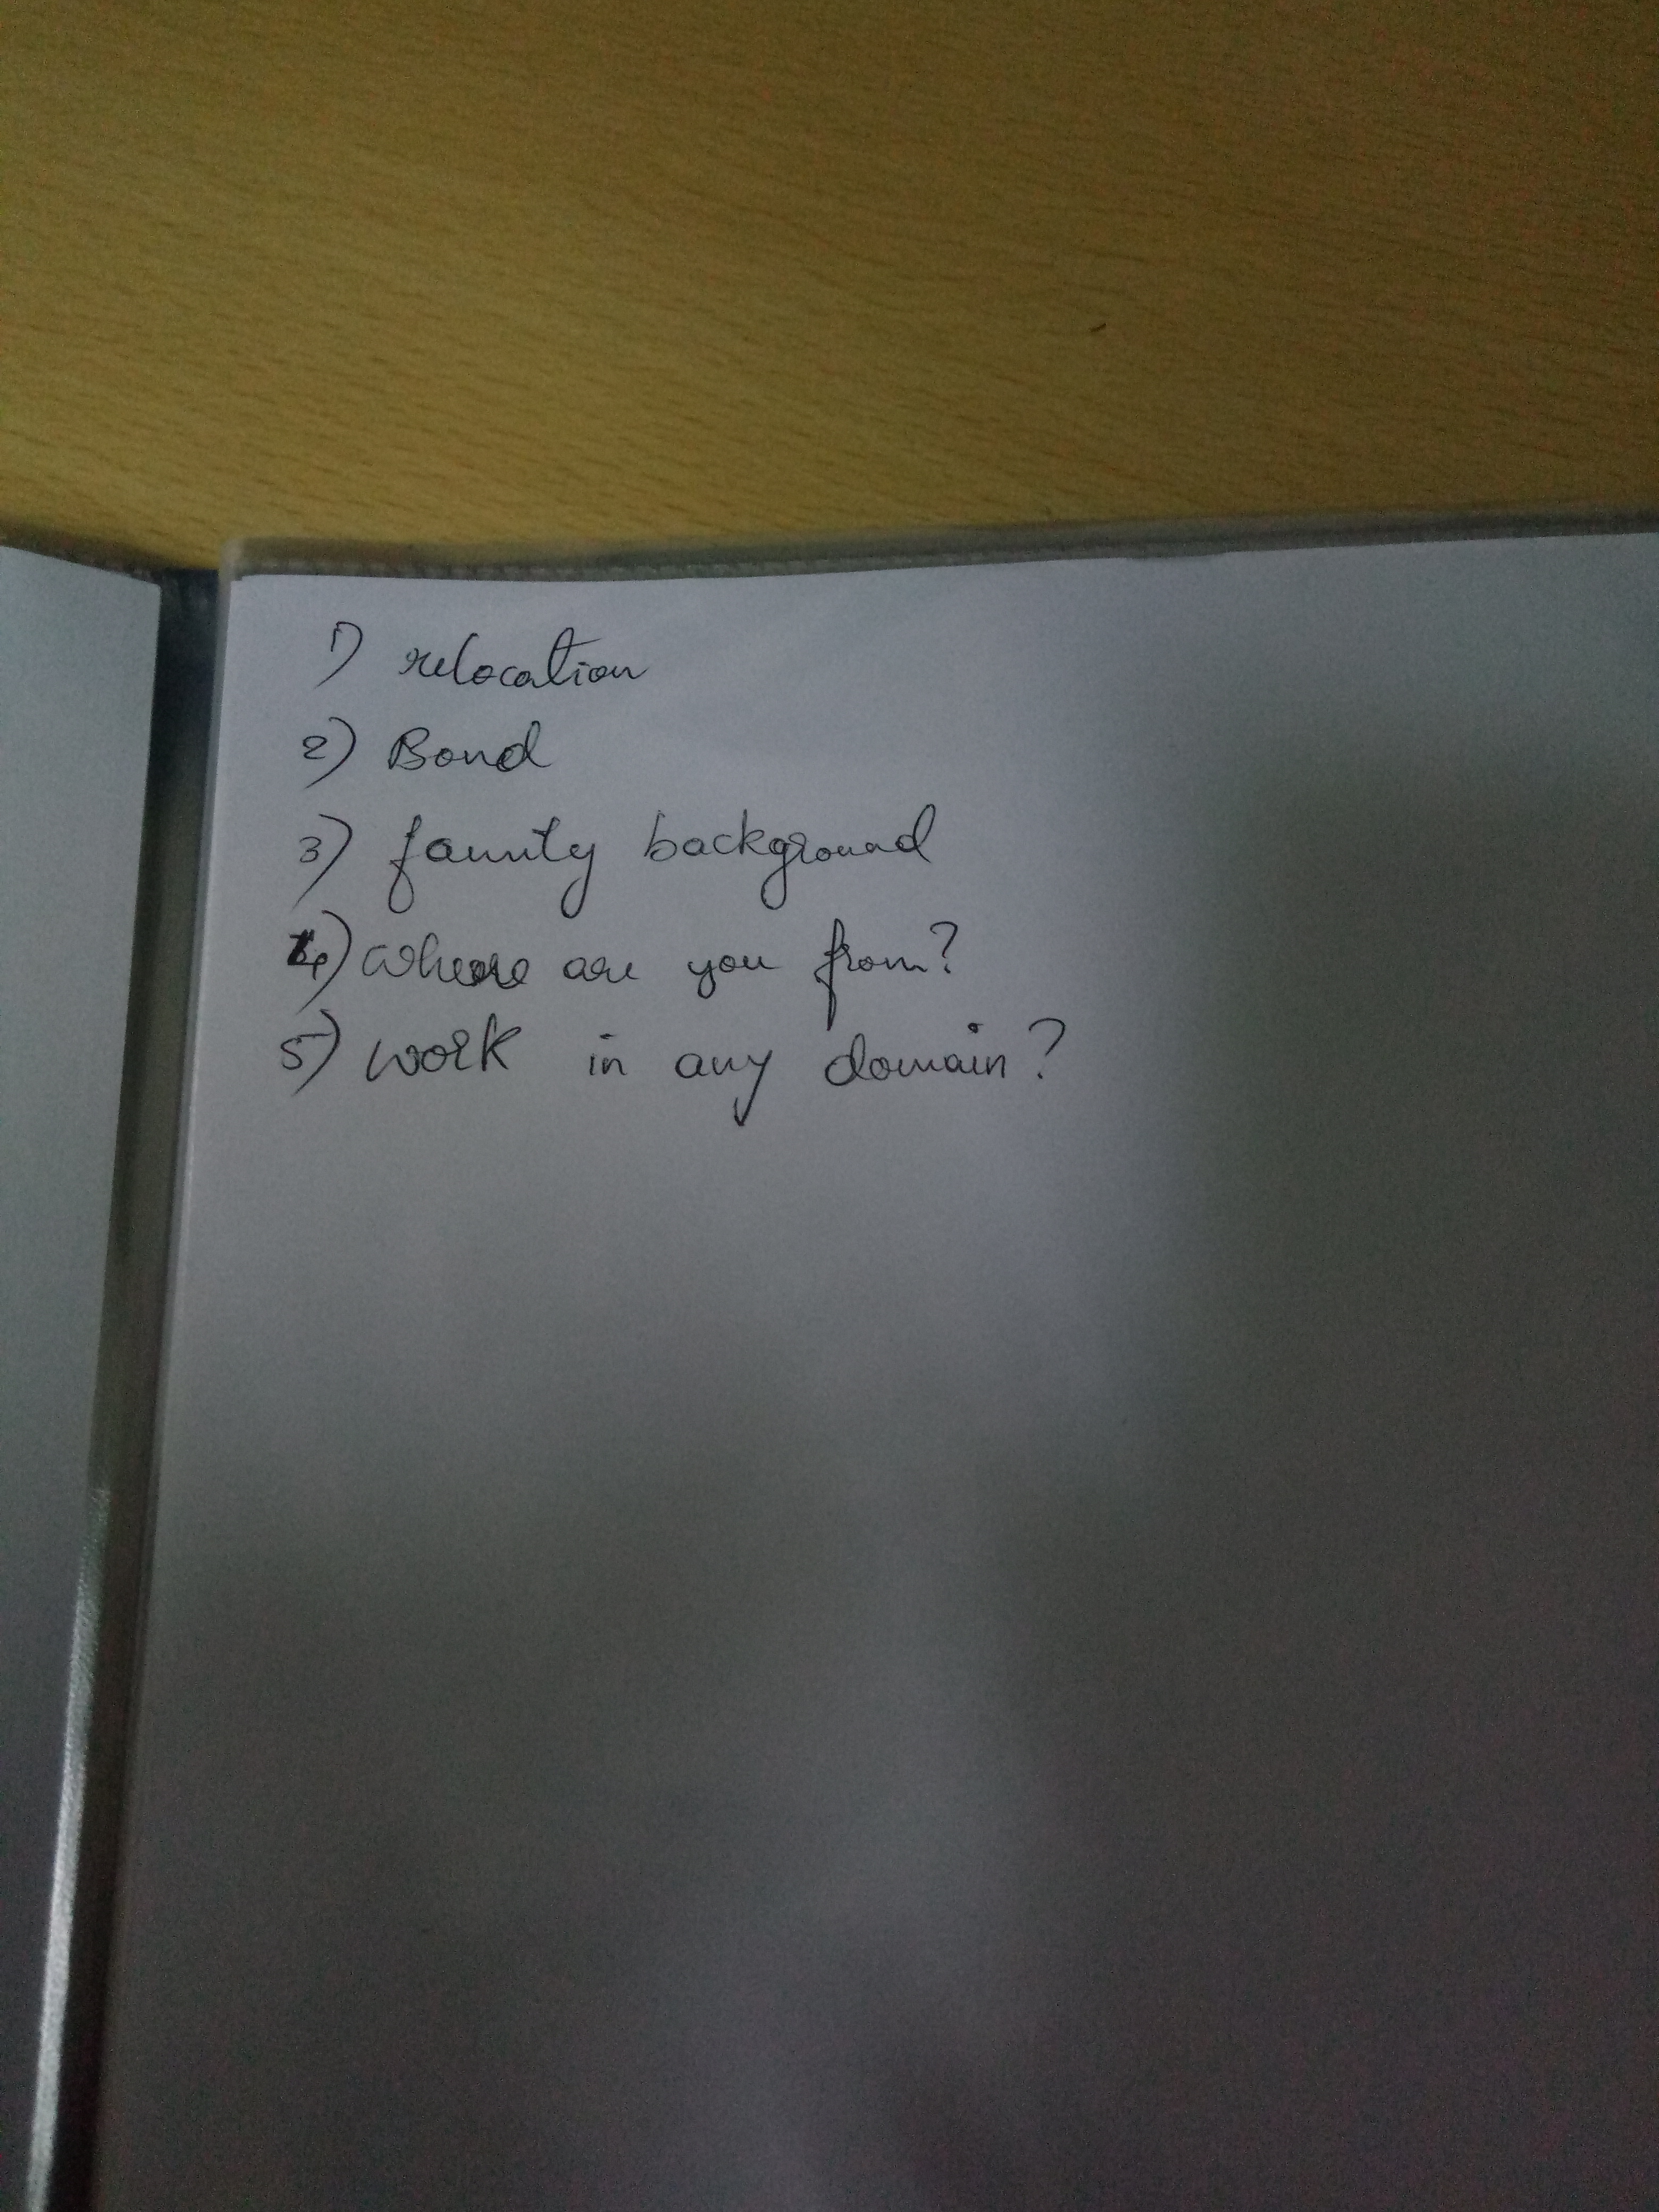 1) relocation
2) Bond
3) family background
4) Where are you from?
5) work in any domain?